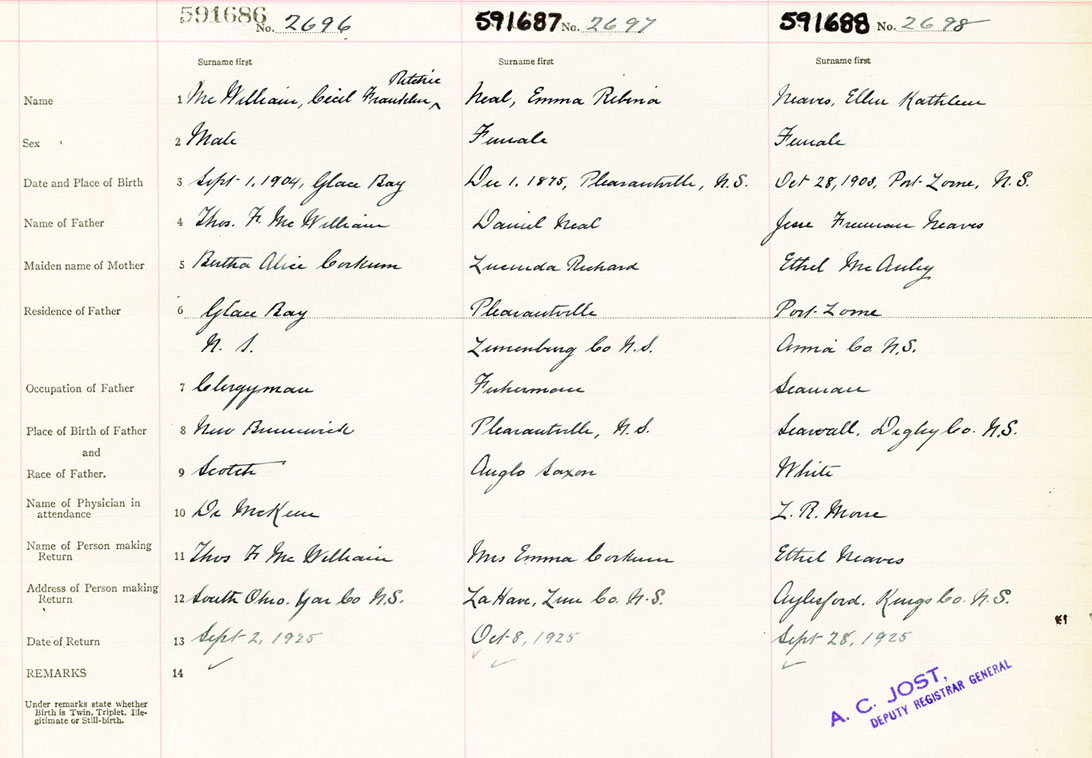 591686 No. 2696 591687 No. 2697 591688 No. 2698
Surname first Surname first Surname first
Ritchie
Name 1 McWilliam, Cecil Franklin, Neal, Emma Rebina Neaves, Ellen Kathleen
Sex 2 Male Female Female
Date and Place of Birth 3 Sept 1, 1904, Glace Bay Dec 1, 1875, Pleasantville, N.S. Oct 28, 1903, Port Lorne, N.S.
Name of Father 4 Thos. F. McWilliam Daniel Neal Jesse Freeman Neaves
Maiden name of Mother 5 Bertha Alice Corkum Lucinda Richard Ethel McAuley
Residence of Father 6 Glace Bay Pleasantville Port Lorne
N. S. Lunenburg Co N.S. Anna Co N.S.
Occupation of Father 7 Clergyman Fisherman Seaman
Place of Birth of Father 8 New Brunswick Pleasantville, N.S. Seawall, Digby Co. N.S.
and
Race of Father. 9 Scotch Anglo Saxon White
Name of Physician in
attendance 10 Dr McKeen L. R. Morse
Name of Person making
Return 11 Thos F. McWilliam Mrs Emma Corkum Ethel Neaves
Address of Person making
Return 12 South Ohio. Yar Co N.S. LaHave, Lun Co. N.S. Aylesford, Kings Co. N.S.
Date of Return 13 Sept 2, 1925 Oct 8, 1925 Sept 28, 1925
REMARKS 14
Under remarks state whether
Birth is Twin, Triplet, Ille-
gitimate or Still-birth.
A. C. JOST,
DEPUTY REGISTRAR GENERAL